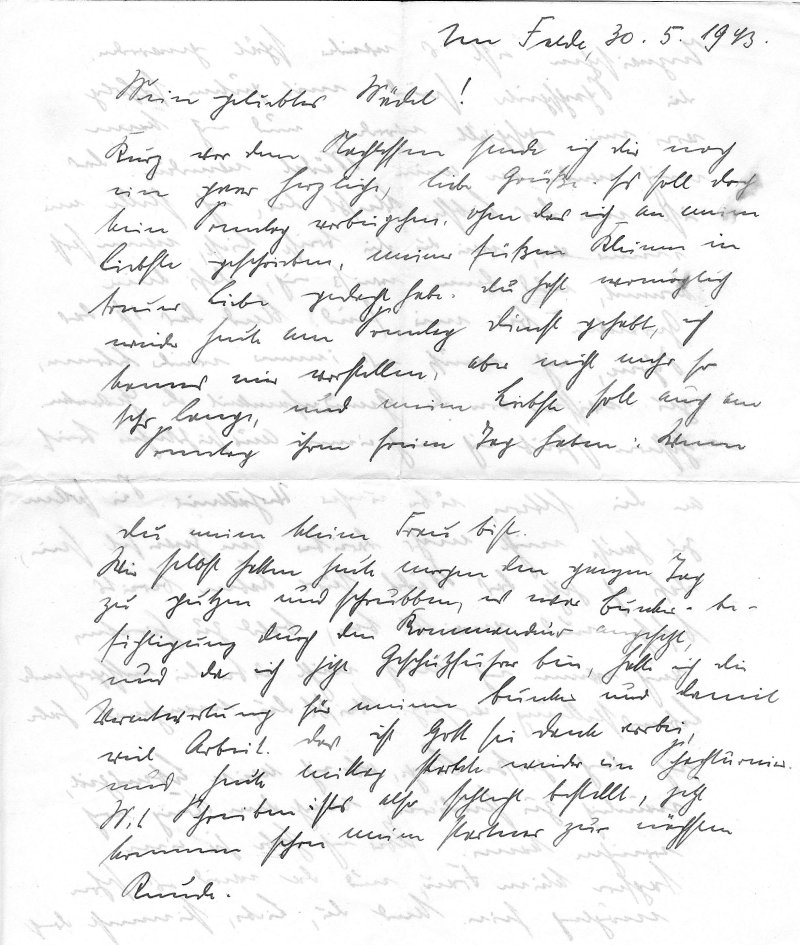 Im Felde, 30. 5. 1943.
Mein geliebtes Mädel!
Kurz vor dem Nachtessen sende ich dir noch
ein paar herzliche, liebe Grüße. Es soll doch
kein Sonntag vorbeigehen, ohne das ich an meine
Liebste geschrieben, meiner süßen Kleinen in
treuer Liebe gedacht habe. Du hast womöglich
wieder heute am Sonntag Dienst gehabt, ich
kanns mir vorstellen, aber nicht mehr so
sehr lange, und meine Liebste soll auch am
Sonntag ihren freien Tag haben: Wenn
du meine kleine Frau bist.
Wir selbst hatten heute morgen den ganzen Tag
zu putzen und schrubben, es war Bunker-be-
sichtigung durch den Kommandeur angesetzt,
und da ich jetzt Geschützführer bin, hatte ich die
Verantwortung für meinen Bunker und damit
viel Arbeit. Das ist Gott sei Dank vorbei,
und heute mittag startete wieder ein Schachturnier.
Mit Schreiben ists also schlecht bestellt, jetzt
kommen schon meine Partner zur nächsten
Runde.